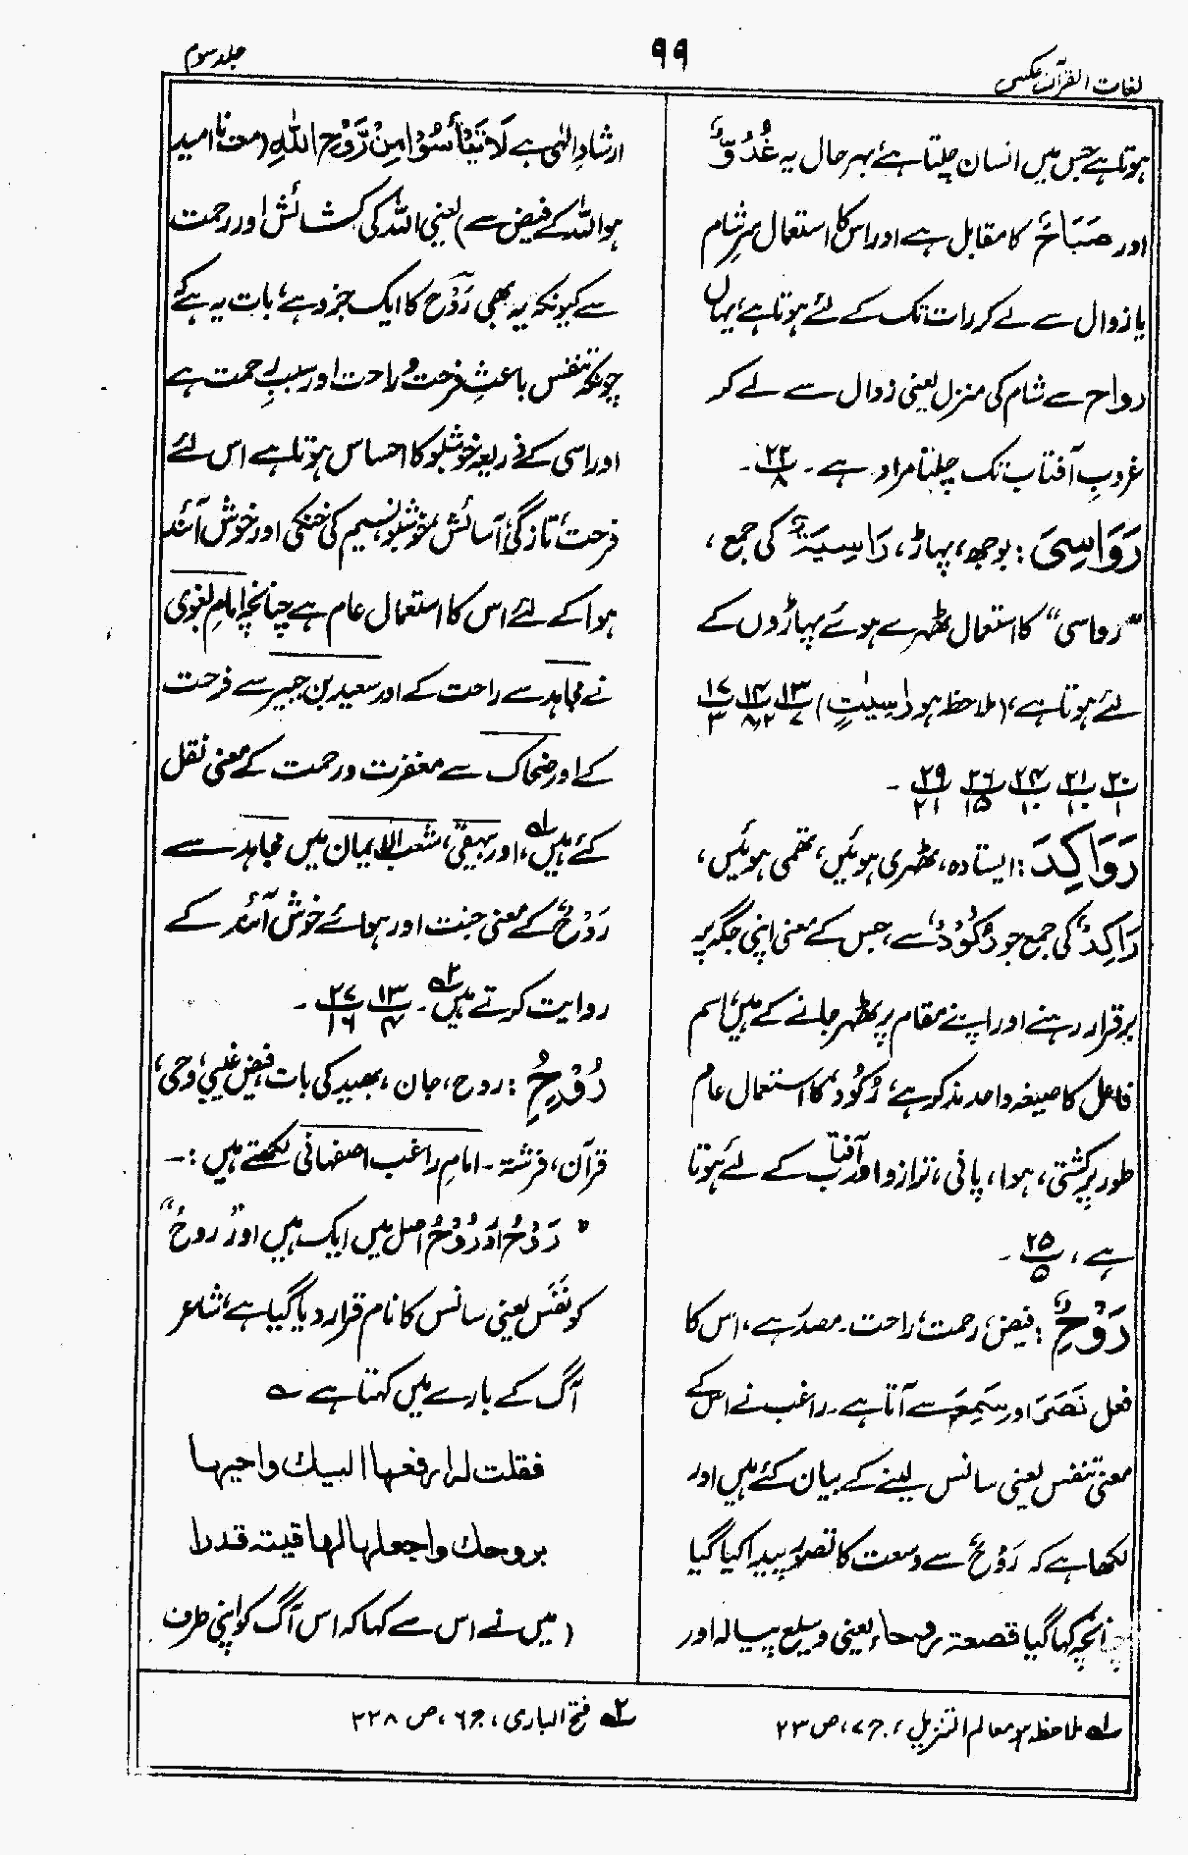 لغات القرآن عکسی
۹۹
جلد سوم
ہوتا ہے جس میں انسان چلتا ہے، بہر حال یہ غُدُوٌّ
اور صَبَاحٌ کا مقابل ہے اور اس کا استعمال سرِ شام
یا زوال سے لے کر رات تک کے لئے ہوتا ہے، یہاں
رواح سے شام کی منزل یعنی زوال سے لے کر
غروبِ آفتاب تک چلنا مراد ہے۔ ۲۲/۸ ۔
رَوَاسِیَ : بوجھ، پہاڑ، رَاسِیَۃٌ کی جمع،
”رواسی“ کا استعمال ٹھہرے ہوئے پہاڑوں کے
لئے ہوتا ہے، (ملاحظہ ہو رٰسِیٰتٍ) ۱۳/۷ ۱۴/۸،۲ ۱۷/۳
۲۰/۱ ۲۱/۱۰ ۲۴/۱۰ ۲۶/۱۵ ۲۹/۲۱ ۔
رَوَاکِدَ : ایستادہ، ٹھہری ہوئیں، تھمی ہوئیں،
رَاکِدٌ کی جمع جو رُکُوْدٌ سے، جس کے معنی اپنی جگہ پر
برقرار رہنے اور اپنے مقام پر ٹھہر جانے کے ہیں، اسم
فاعل کا صیغہ واحد مذکر ہے، رُکُوْدٌ کا استعمال عام
طور پر کشتی، ہوا، پانی، ترازو اور آفتاب کے لئے ہوتا
ہے، ۲۵/۵ ۔
رَوْحِ : فیض، رحمت، راحت۔ مصدر ہے، اس کا
فعل نَصَرَ اور سَمِعَ سے آتا ہے۔ راغب نے اس کے
معنی تنفس یعنی سانس لینے کے بیان کئے ہیں اور
لکھا ہے کہ رَوْحٌ سے وسعت کا تصور پیدا کیا گیا
چنانچہ کہا گیا قصعۃ روحاء یعنی وسیع پیالہ اور
ارشادِ الٰہی ہے لَا تَیْأَسُوْا مِنْ رَّوْحِ اللّٰہِ (مت نا امید
ہو اللہ کے فیض سے) یعنی اللہ کی کشائش اور رحمت
سے کیونکہ یہ بھی رَوْح کا ایک جزو ہے، بات یہ ہے کہ
چونکہ تنفس باعثِ فرحت و راحت اور سببِ رحمت ہے
اور اسی کے ذریعہ خوشبو کا احساس ہوتا ہے اس لئے
فرحت، تازگی، آسائش، خوشبو، نسیم کی خنکی اور خوش آئند
ہوا کے لئے اس کا استعمال عام ہے چنانچہ امام بغوی
نے مجاہد سے راحت کے اور سعید بن جبیر سے فرحت
کے اور ضحاک سے مغفرت و رحمت کے معنی نقل
کئے ہیں،۱؎ اور بیہقی، شعب الایمان میں مجاہد سے
رَوْحٌ کے معنی جنت اور ہوائے خوش آئند کے
روایت کرتے ہیں۲؎۔ ۱۳/۴ ۲۷/۱۶ ۔
رُوْحِ : روح، جان، بھید کی بات، فیضِ غیبی، وحی،
قرآن، فرشتہ۔ امام راغب اصفہانی لکھتے ہیں :۔
” رَوْحٌ اور رُوْحٌ اصل میں ایک ہیں اور ”روح“
کو نَفَس یعنی سانس کا نام قرار دیا گیا ہے، شاعر
آگ کے بارے میں کہتا ہے ؎
فقلت لہ ارفعہا الیک واحیہا
بروحک واجعلہا لہا قیتۃ قدرا
(میں نے اس سے کہا کہ اس آگ کو اپنی طرف
۱؎ ملاحظہ ہو معالم التنزیل، ج۷، ص ۲۳
۲؎ فتح الباری، ج۶، ص ۲۲۸